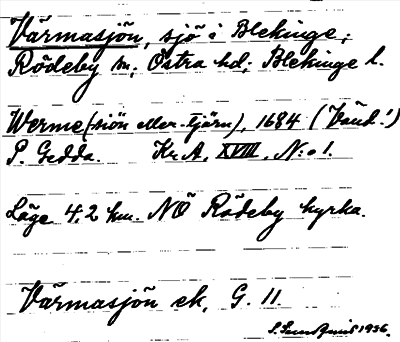 Värmasjön, sjö i Blekinge;
Rödeby sn; Östra hd; Blekinge l.
Werme (siön eller-tjärn), 1684 (Vänd!)
P. Gedda. Kr.A. XVIII, N:o 1.
Läge 4,2 km. NÖ Rödeby kyrka.
Värmasjön ek, G. 11.
1936.